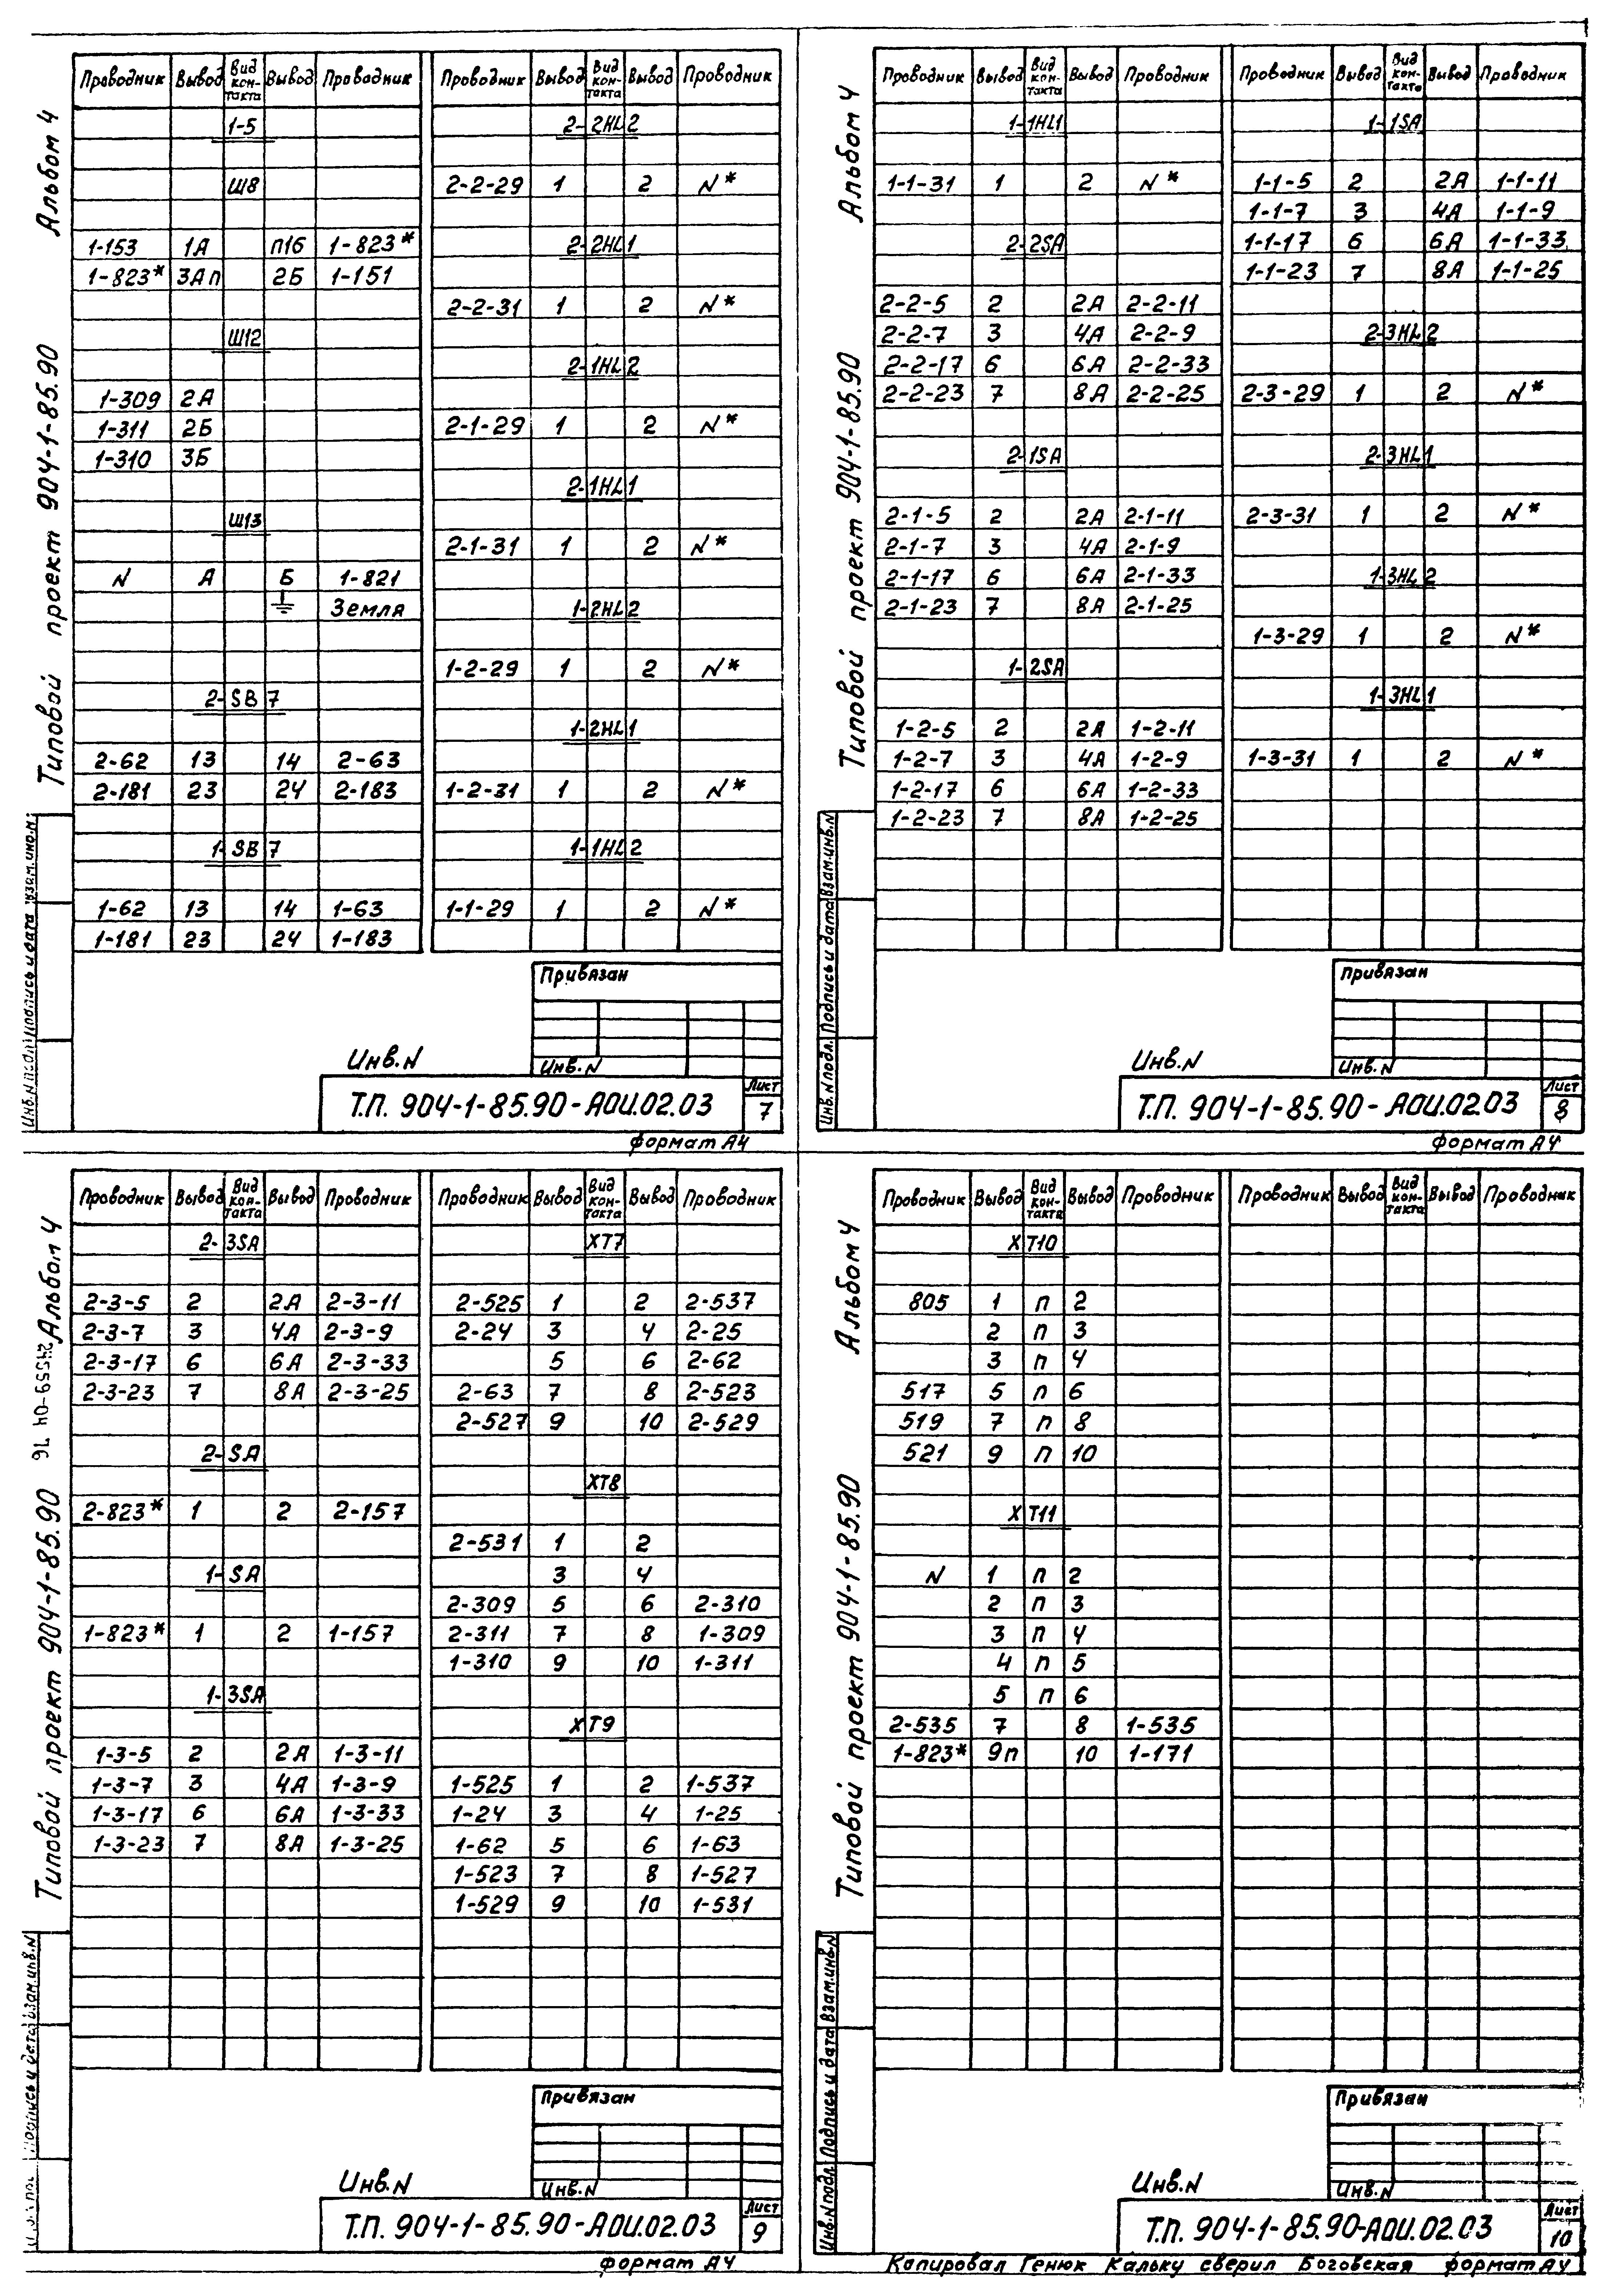 Альбом 4
Типовой проект 904-1-85.90
Проводник Вывод Вид контакта Вывод Проводник Проводник Вывод Вид контакта Вывод Проводник
1-5 2-2HL2
Ш8 2-2-29 1 2 N*
1-153 1А П1б 1-823* 2-2HL1
1-823* 3Ап 2Б 1-151
2-2-31 1 2 N*
Ш12
2-1HL2
1-309 2А
1-311 2Б 2-1-29 1 2 N*
1-310 3Б
2-1HL1
Ш13
2-1-31 1 2 N*
N А Б 1-821
Земля 1-2HL2
1-2-29 1 2 N*
2-SB7
1-2HL1
2-62 13 14 2-63
2-181 23 24 2-183 1-2-31 1 2 N*
1-SB7 1-1HL2
1-62 13 14 1-63 1-1-29 1 2 N*
1-181 23 24 1-183
Привязан
Инв.N
Инв.N
Т.П. 904-1-85.90-АОИ.02.03
Лист
7
формат А4
Альбом 4
Типовой проект 904-1-85.90
Инв.N подл. Подпись и дата Взам.инв.N
Проводник Вывод Вид контакта Вывод Проводник Проводник Вывод Вид контакта Вывод Проводник
1-1HL1 1-1SA
1-1-31 1 2 N* 1-1-5 2 2А 1-1-11
1-1-7 3 4А 1-1-9
2-2SA 1-1-17 6 6А 1-1-33
1-1-23 7 8А 1-1-25
2-2-5 2 2А 2-2-11
2-2-7 3 4А 2-2-9 2-3HL2
2-2-17 6 6А 2-2-33
2-2-23 7 8А 2-2-25 2-3-29 1 2 N*
2-1SA 2-3HL1
2-1-5 2 2А 2-1-11 2-3-31 1 2 N*
2-1-7 3 4А 2-1-9
2-1-17 6 6А 2-1-33 1-3HL2
2-1-23 7 8А 2-1-25
1-3-29 1 2 N*
1-2SA
1-3HL1
1-2-5 2 2А 1-2-11
1-2-7 3 4А 1-2-9 1-3-31 1 2 N*
1-2-17 6 6А 1-2-33
1-2-23 7 8А 1-2-25
Привязан
Инв.N
Инв.N
Т.П. 904-1-85.90-АОИ.02.03
Лист
8
формат А4
Альбом 4
24559-04 76
Типовой проект 904-1-85.90
Проводник Вывод Вид контакта Вывод Проводник Проводник Вывод Вид контакта Вывод Проводник
2-3SA XT7
2-3-5 2 2А 2-3-11 2-525 1 2 2-537
2-3-7 3 4А 2-3-9 2-24 3 4 2-25
2-3-17 6 6А 2-3-33 5 6 2-62
2-3-23 7 8А 2-3-25 2-63 7 8 2-523
2-527 9 10 2-529
2-SA
XT8
2-823* 1 2 2-157
2-531 1 2
1-SA 3 4
2-309 5 6 2-310
1-823* 1 2 1-157 2-311 7 8 1-309
1-310 9 10 1-311
1-3SA
XT9
1-3-5 2 2А 1-3-11
1-3-7 3 4А 1-3-9 1-525 1 2 1-537
1-3-17 6 6А 1-3-33 1-24 3 4 1-25
1-3-23 7 8А 1-3-25 1-62 5 6 1-63
1-523 7 8 1-527
1-529 9 10 1-531
Привязан
Инв.N
Инв.N
Т.П. 904-1-85.90-АОИ.02.03
Лист
9
формат А4
Альбом 4
Типовой проект 904-1-85.90
Инв.N подл Подпись и дата Взам.инв.N
Проводник Вывод Вид контакта Вывод Проводник Проводник Вывод Вид контакта Вывод Проводник
XT10
805 1 п 2
2 п 3
3 п 4
517 5 п 6
519 7 п 8
521 9 п 10
XT11
N 1 п 2
2 п 3
3 п 4
4 п 5
5 п 6
2-535 7 8 1-535
1-823* 9п 10 1-171
Привязан
Инв.N
Инв.N
Т.П. 904-1-85.90-АОИ.02.03
Лист
10
Копировал Генюк Кальку сверил Боговская формат А4